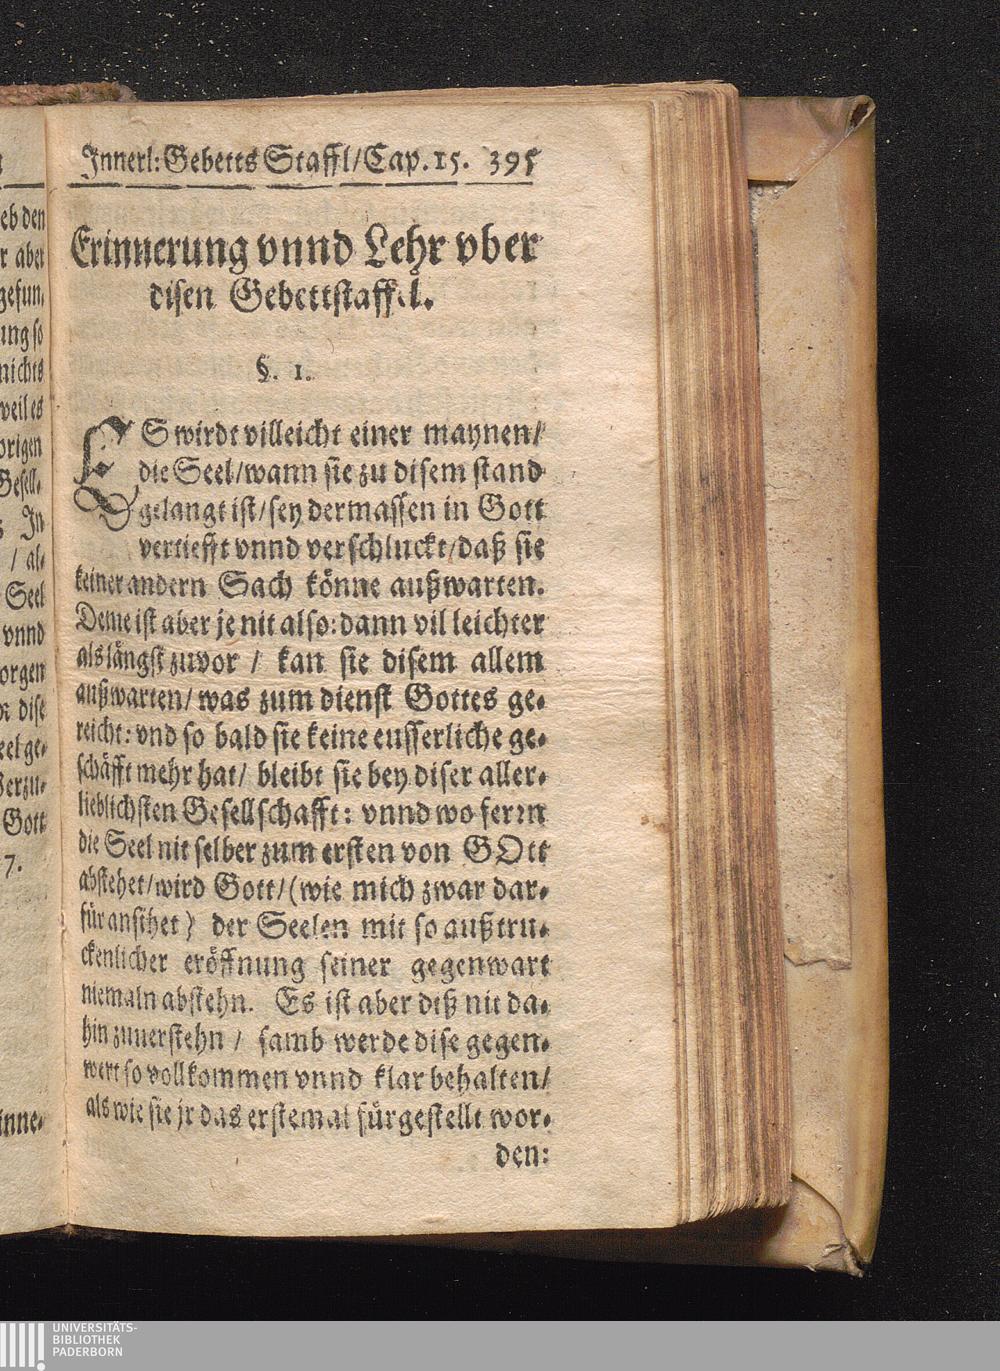 Innerl: Gebetts Staffl/Cap. 15. 395
Erinnerung vnnd Lehr vber
disen Gebettstaffel.
§. 1.
ES wirdt villeicht einer maynen/
die Seel/wann sie zu disem stand
gelangt ist/sey dermassen in Gott
vertiefft vnnd verschluckt/daß sie
keiner andern Sach könne außwarten.
Deme ist aber je nit also: dann vil leichter
als längst zuvor / kan sie disem allem
außwarten/ was zum dienst Gottes ge-
reicht: vnd so bald sie keine eusserliche ge-
schäfft mehr hat/ bleibt sie bey diser aller-
lieblichsten Gesellschafft: vnnd wo ferrn
die Seel nit selber zum ersten von GOtt
abstehet/wird Gott/(wie mich zwar dar-
für ansihet) der Seelen mit so außtru-
ckenlicher eröffnung seiner gegenwart
niemaln abstehn. Es ist aber diß nit da-
hin zuuerstehn / samb werde dise gegen-
wert so vollkommen vnnd klar behalten/
als wie sie jr das erstemal fürgestellt wor-
den:
eb den
r aber
gefun-
ung so
nichts
weil es
origen
Gesell-
In
/ al-
Seel
vnnd
orgen
dise
eel ge-
Gott
7.
inne-
UNIVERSITÄTS-
BIBLIOTHEK
PADERBORN